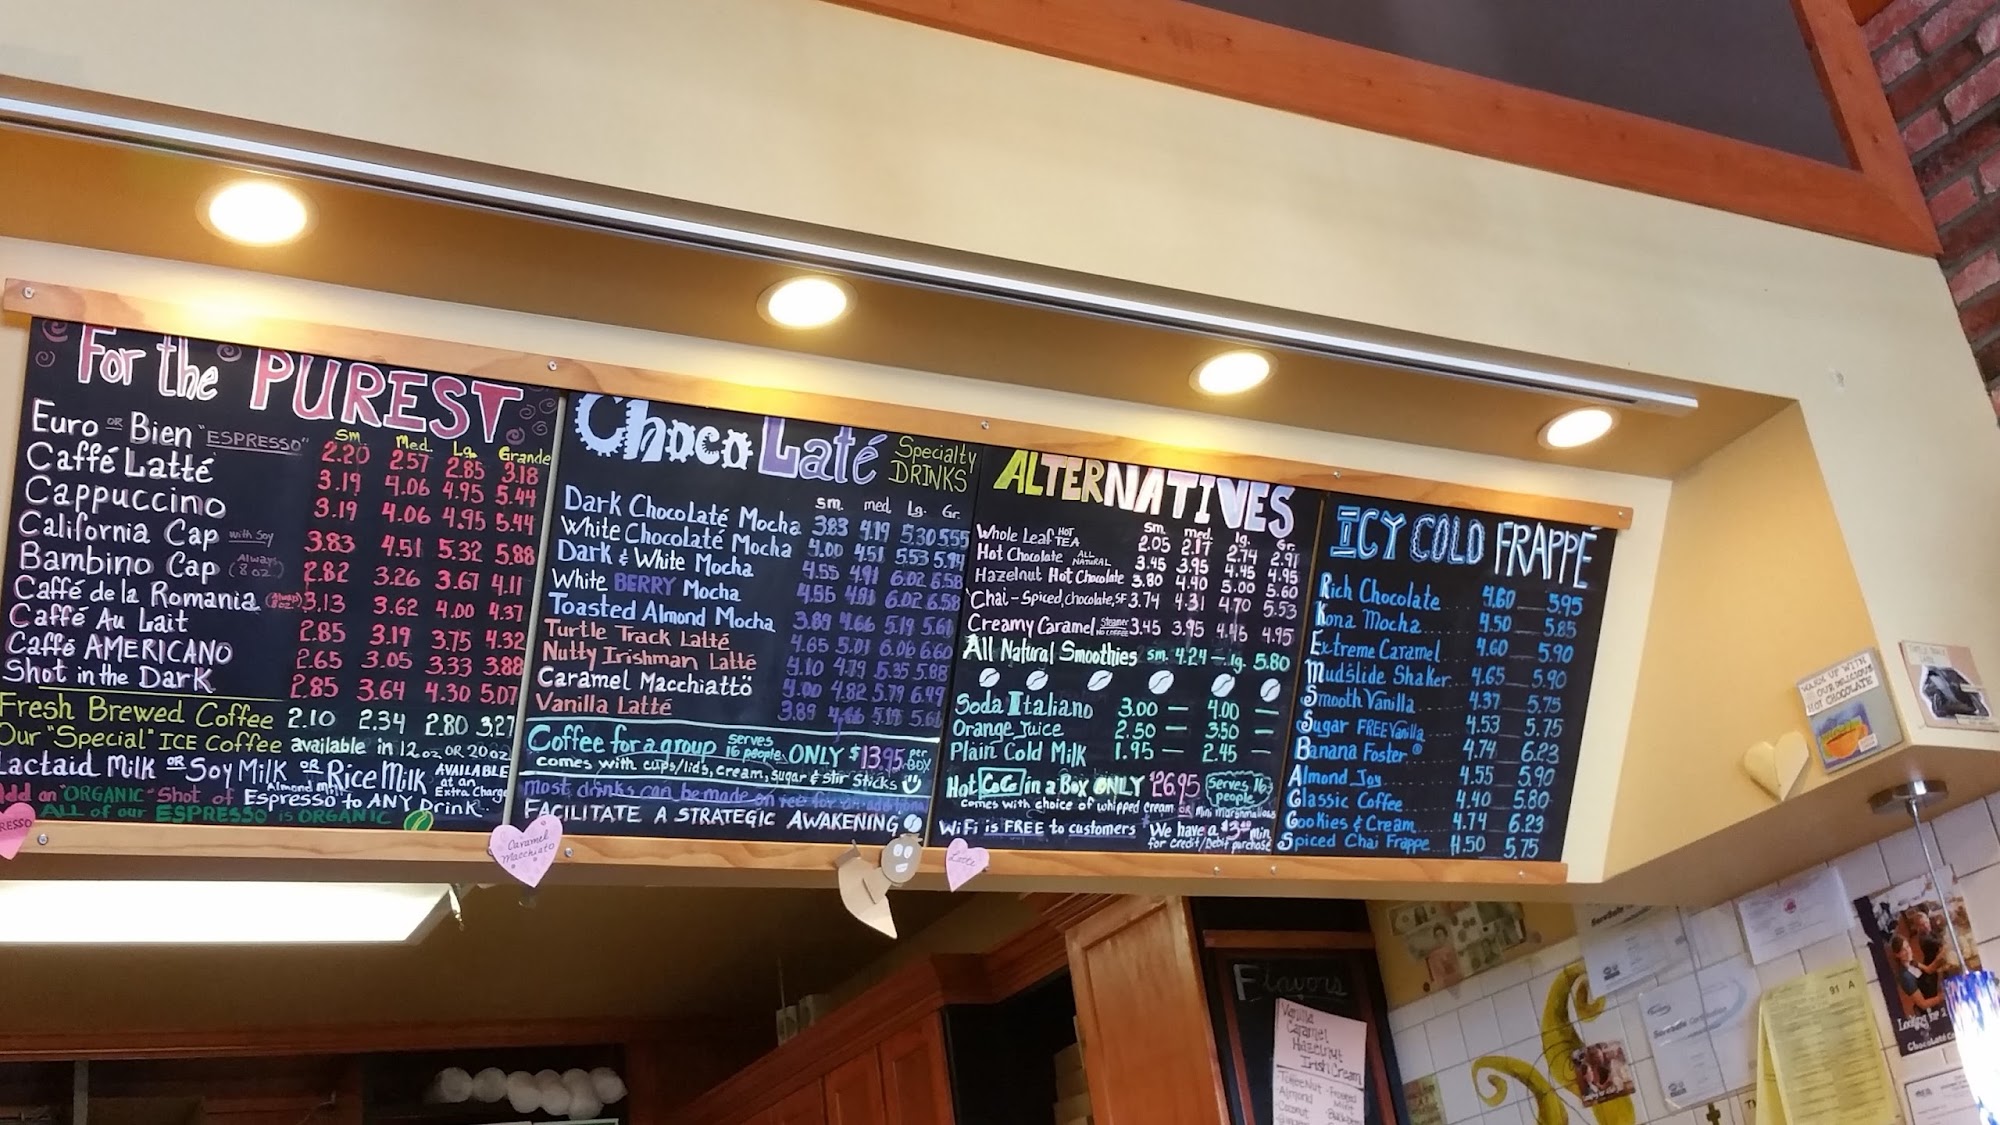 For the PUREST
Sm. Med. Lg. Grande
Euro OR Bien "ESPRESSO" 2.20 2.57 2.85 3.18
Caffé Latté 3.19 4.06 4.95 5.44
Cappuccino 3.19 4.06 4.95 5.44
California Cap with Soy 3.83 4.51 5.32 5.88
Bambino Cap (Always 8oz) 2.82 3.26 3.67 4.11
Caffé de la Romania (Always 8oz) 3.13 3.62 4.00 4.37
Caffé Au Lait 2.85 3.19 3.75 4.32
Caffé AMERICANO 2.65 3.05 3.33 3.88
Shot in the Dark 2.85 3.64 4.30 5.07
Fresh Brewed Coffee 2.10 2.34 2.80 3.27
Our "Special" ICE Coffee available in 12oz OR 20oz
Lactaid Milk OR Soy Milk OR Rice Milk AVAILABLE at an Extra Charge
Almond Milk
Add an "ORGANIC" Shot of Espresso to ANY Drink
ALL of our ESPRESSO is ORGANIC
ChocoLaté Specialty DRINKS
sm. med. Lg. Gr.
Dark ChocoLaté Mocha 3.83 4.19 5.30 5.55
White Chocolaté Mocha 4.00 4.51 5.53 5.94
Dark & White Mocha 4.55 4.91 6.02 6.58
White BERRY Mocha 4.91 6.02 6.58
Toasted Almond Mocha 3.89 4.66 5.19 5.61
Turtle Track Latté 4.65 5.01 6.06 6.60
Nutty Irishman Latté 4.10 4.79 5.35 5.88
Caramel Macchiattö 4.00 4.82 5.79 6.49
Vanilla Latté 3.89 5.61
Coffee for a group serves 16 people ONLY $13.95 per BOX
comes with cups/lids, cream, sugar & stir sticks
most drinks can be made on
FACILITATE A STRATEGIC AWAKENING
ALTERNATIVES
Sm. med. lg. Gr.
Whole Leaf HOT TEA 2.05 2.17 2.74 2.91
Hot Chocolate ALL NATURAL 3.45 3.95 4.45 4.95
Hazelnut Hot Chocolate 3.80 4.40 5.00 5.60
Chai-Spiced, Chocolate, SF 3.74 4.31 4.70 5.53
Creamy Caramel Steamer NO COFFEE 3.45 3.95 4.45 4.95
All Natural Smoothies sm. 4.24 — lg. 5.80
Soda Italiano 3.00 — 4.00 —
Orange Juice 2.50 — 3.50 —
Plain Cold Milk 1.95 — 2.45 —
Hot CoCo/in a Box ONLY $26.95 Serves 16 people
comes with choice of whipped cream OR mini marshmallows
WiFi is FREE to customers We have a $3.00 min.
for credit/debit purchase
ICY COLD FRAPPÉ
Rich Chocolate 4.60 5.95
Kona Mocha 4.50 5.85
Extreme Caramel 4.60 5.90
Mudslide Shaker 4.65 5.90
Smooth Vanilla 4.37 5.75
Sugar FREE Vanilla 4.53 5.75
Banana Foster® 4.74 6.23
Almond Joy 4.55 5.90
Classic Coffee 4.40 5.80
Cookies & Cream 4.74 6.23
Spiced Chai Frappe 4.50 5.75
RESSO
Caramel Macchiato
Latte
WARM UP WITH
OUR DELICIOUS
HOT CHOCOLATE
Flavors
Vanilla
Caramel
Hazelnut
Irish Cream
Almond
Coconut
91 A
Looking for a